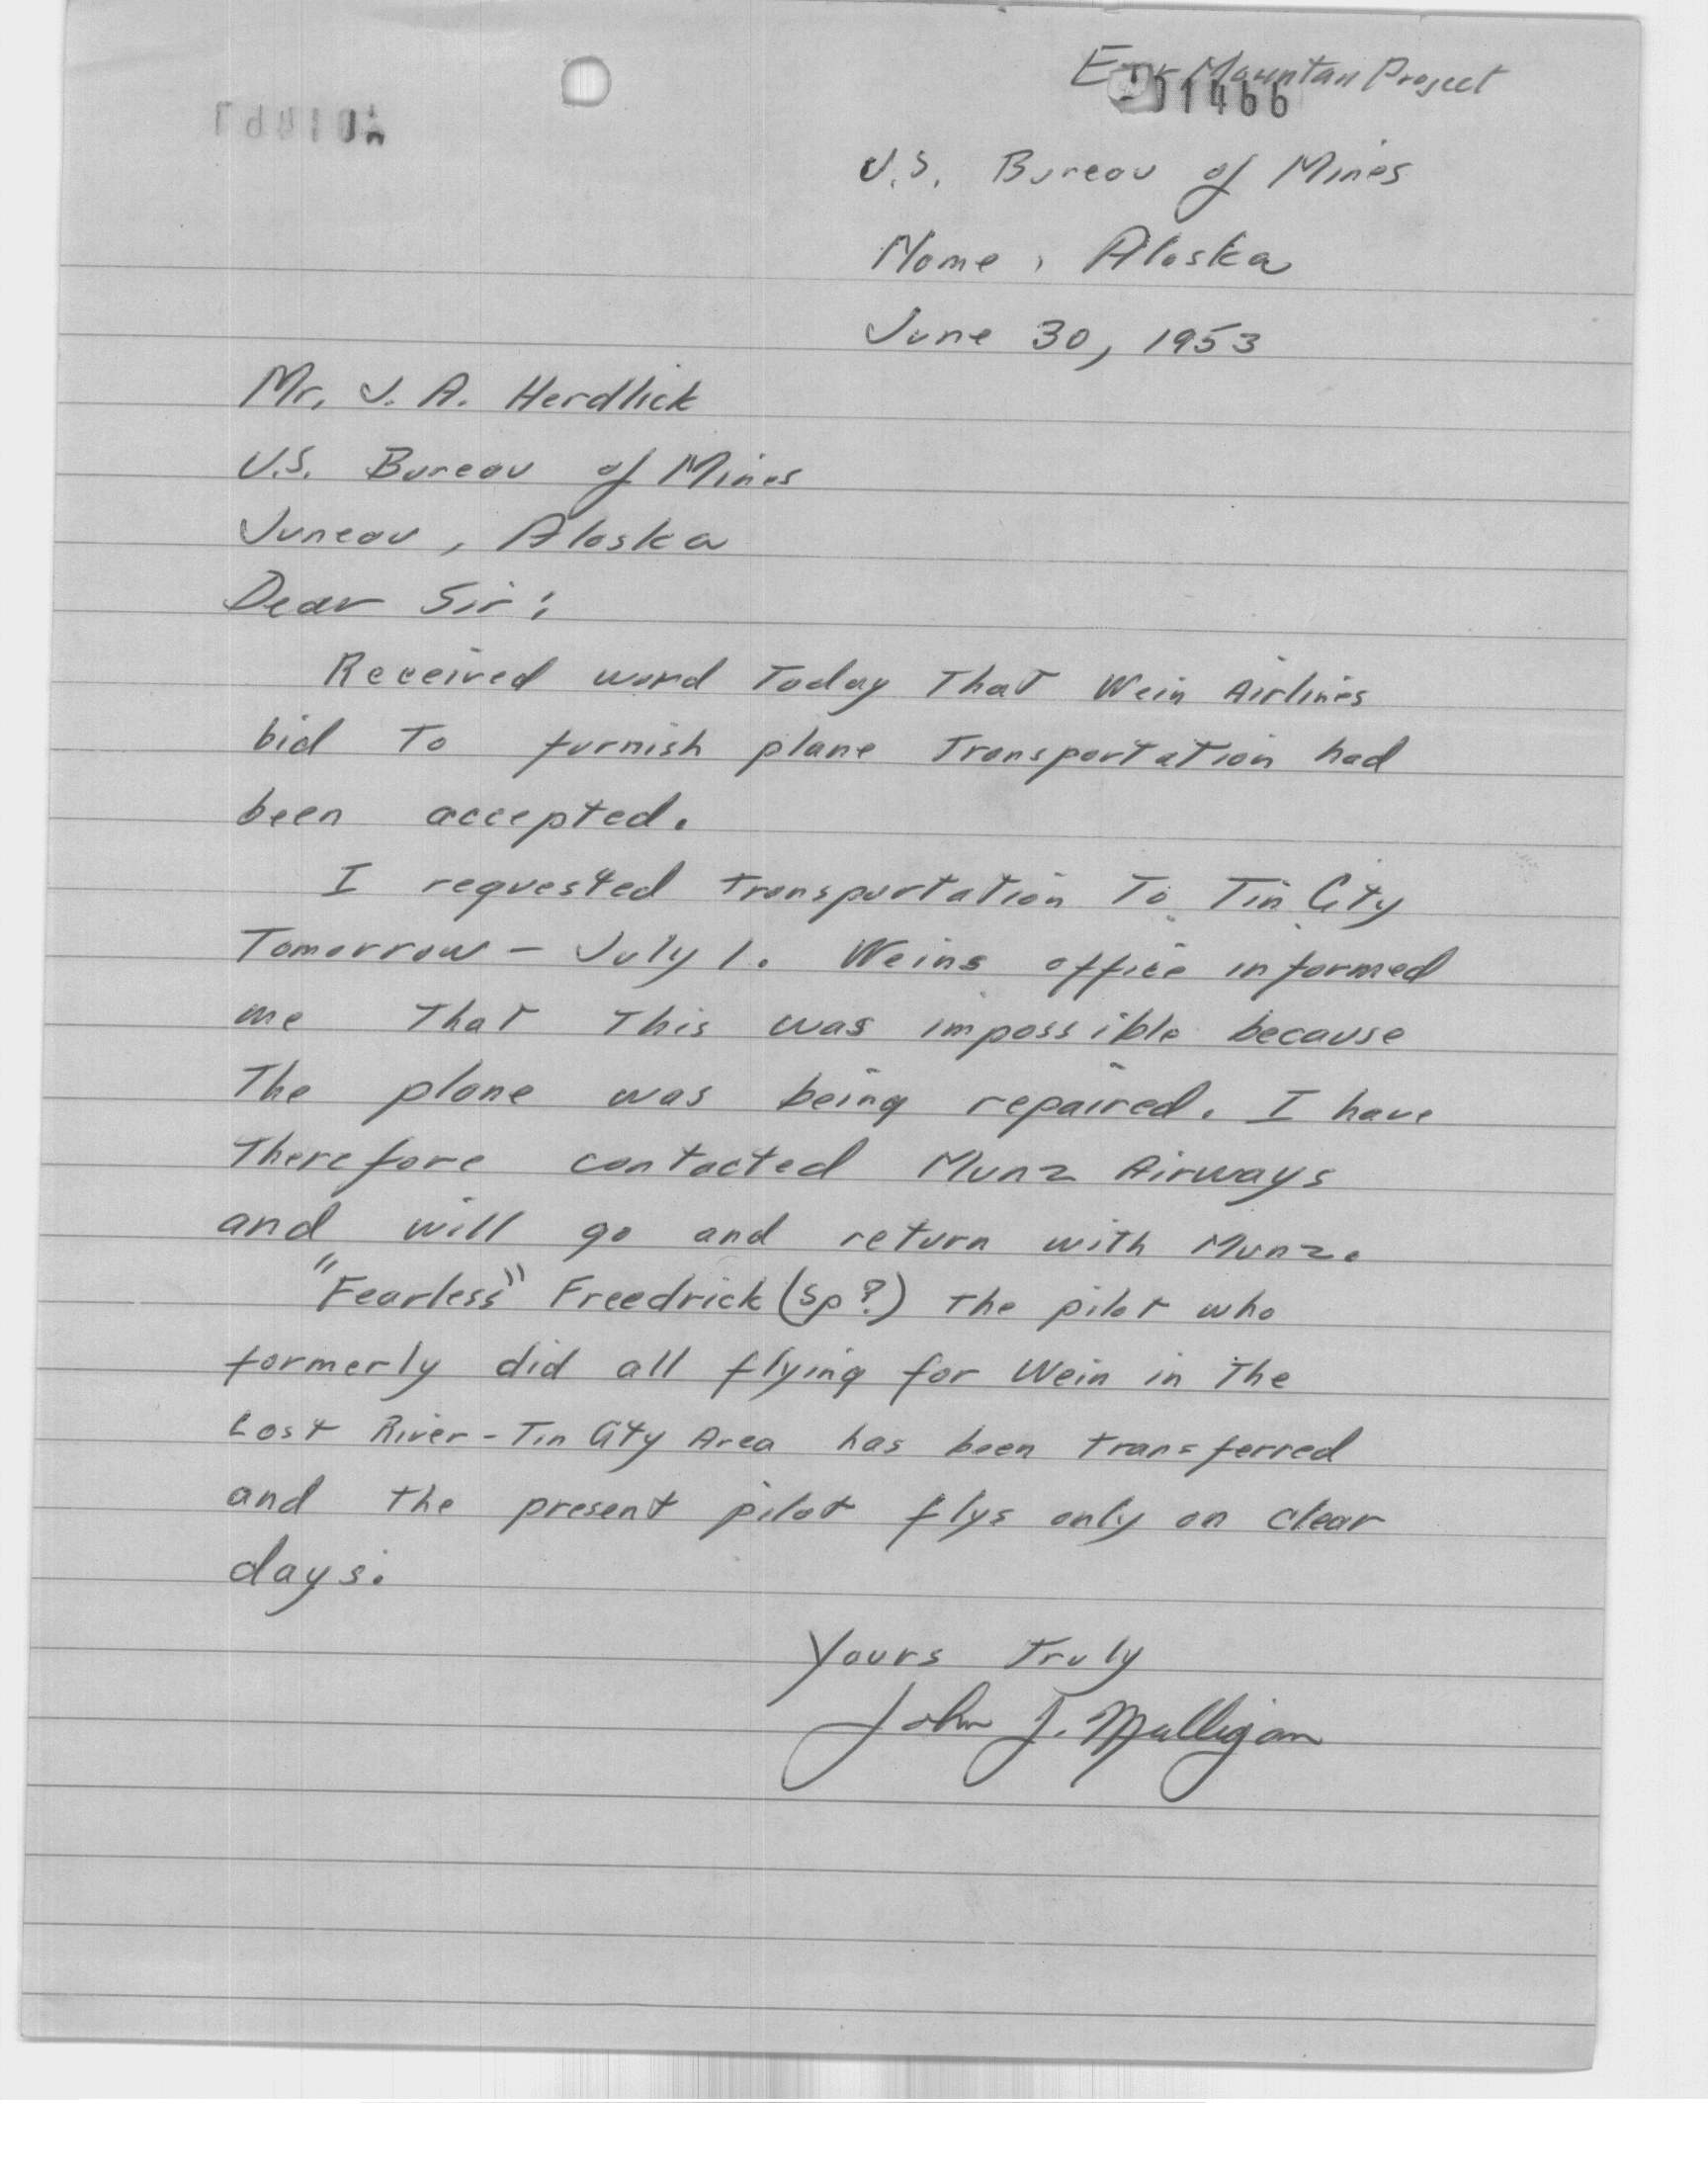 Ear Mountan Project
01466
U.S. Bureau of Mines
Nome, Alaska
June 30, 1953
Mr. J. A. Herdlick
U.S. Bureau of Mines
Juneau, Alaska
Dear Sir:
Received word Today That Wein Airlines
bid To furnish plane Transportation had
been accepted.
I requested transportation To Tin City
Tomorrow - July 1. Weins office informed
me That This was impossible because
The plane was being repaired. I have
Therefore contacted Munz Airways
and will go and return with Munz.
"Fearless" Freedrick (sp?) The pilot who
formerly did all flying for Wein in The
Lost River - Tin City Area has been transferred
and the present pilot flys only on clear
days.
Yours Truly
John J. Mulligan